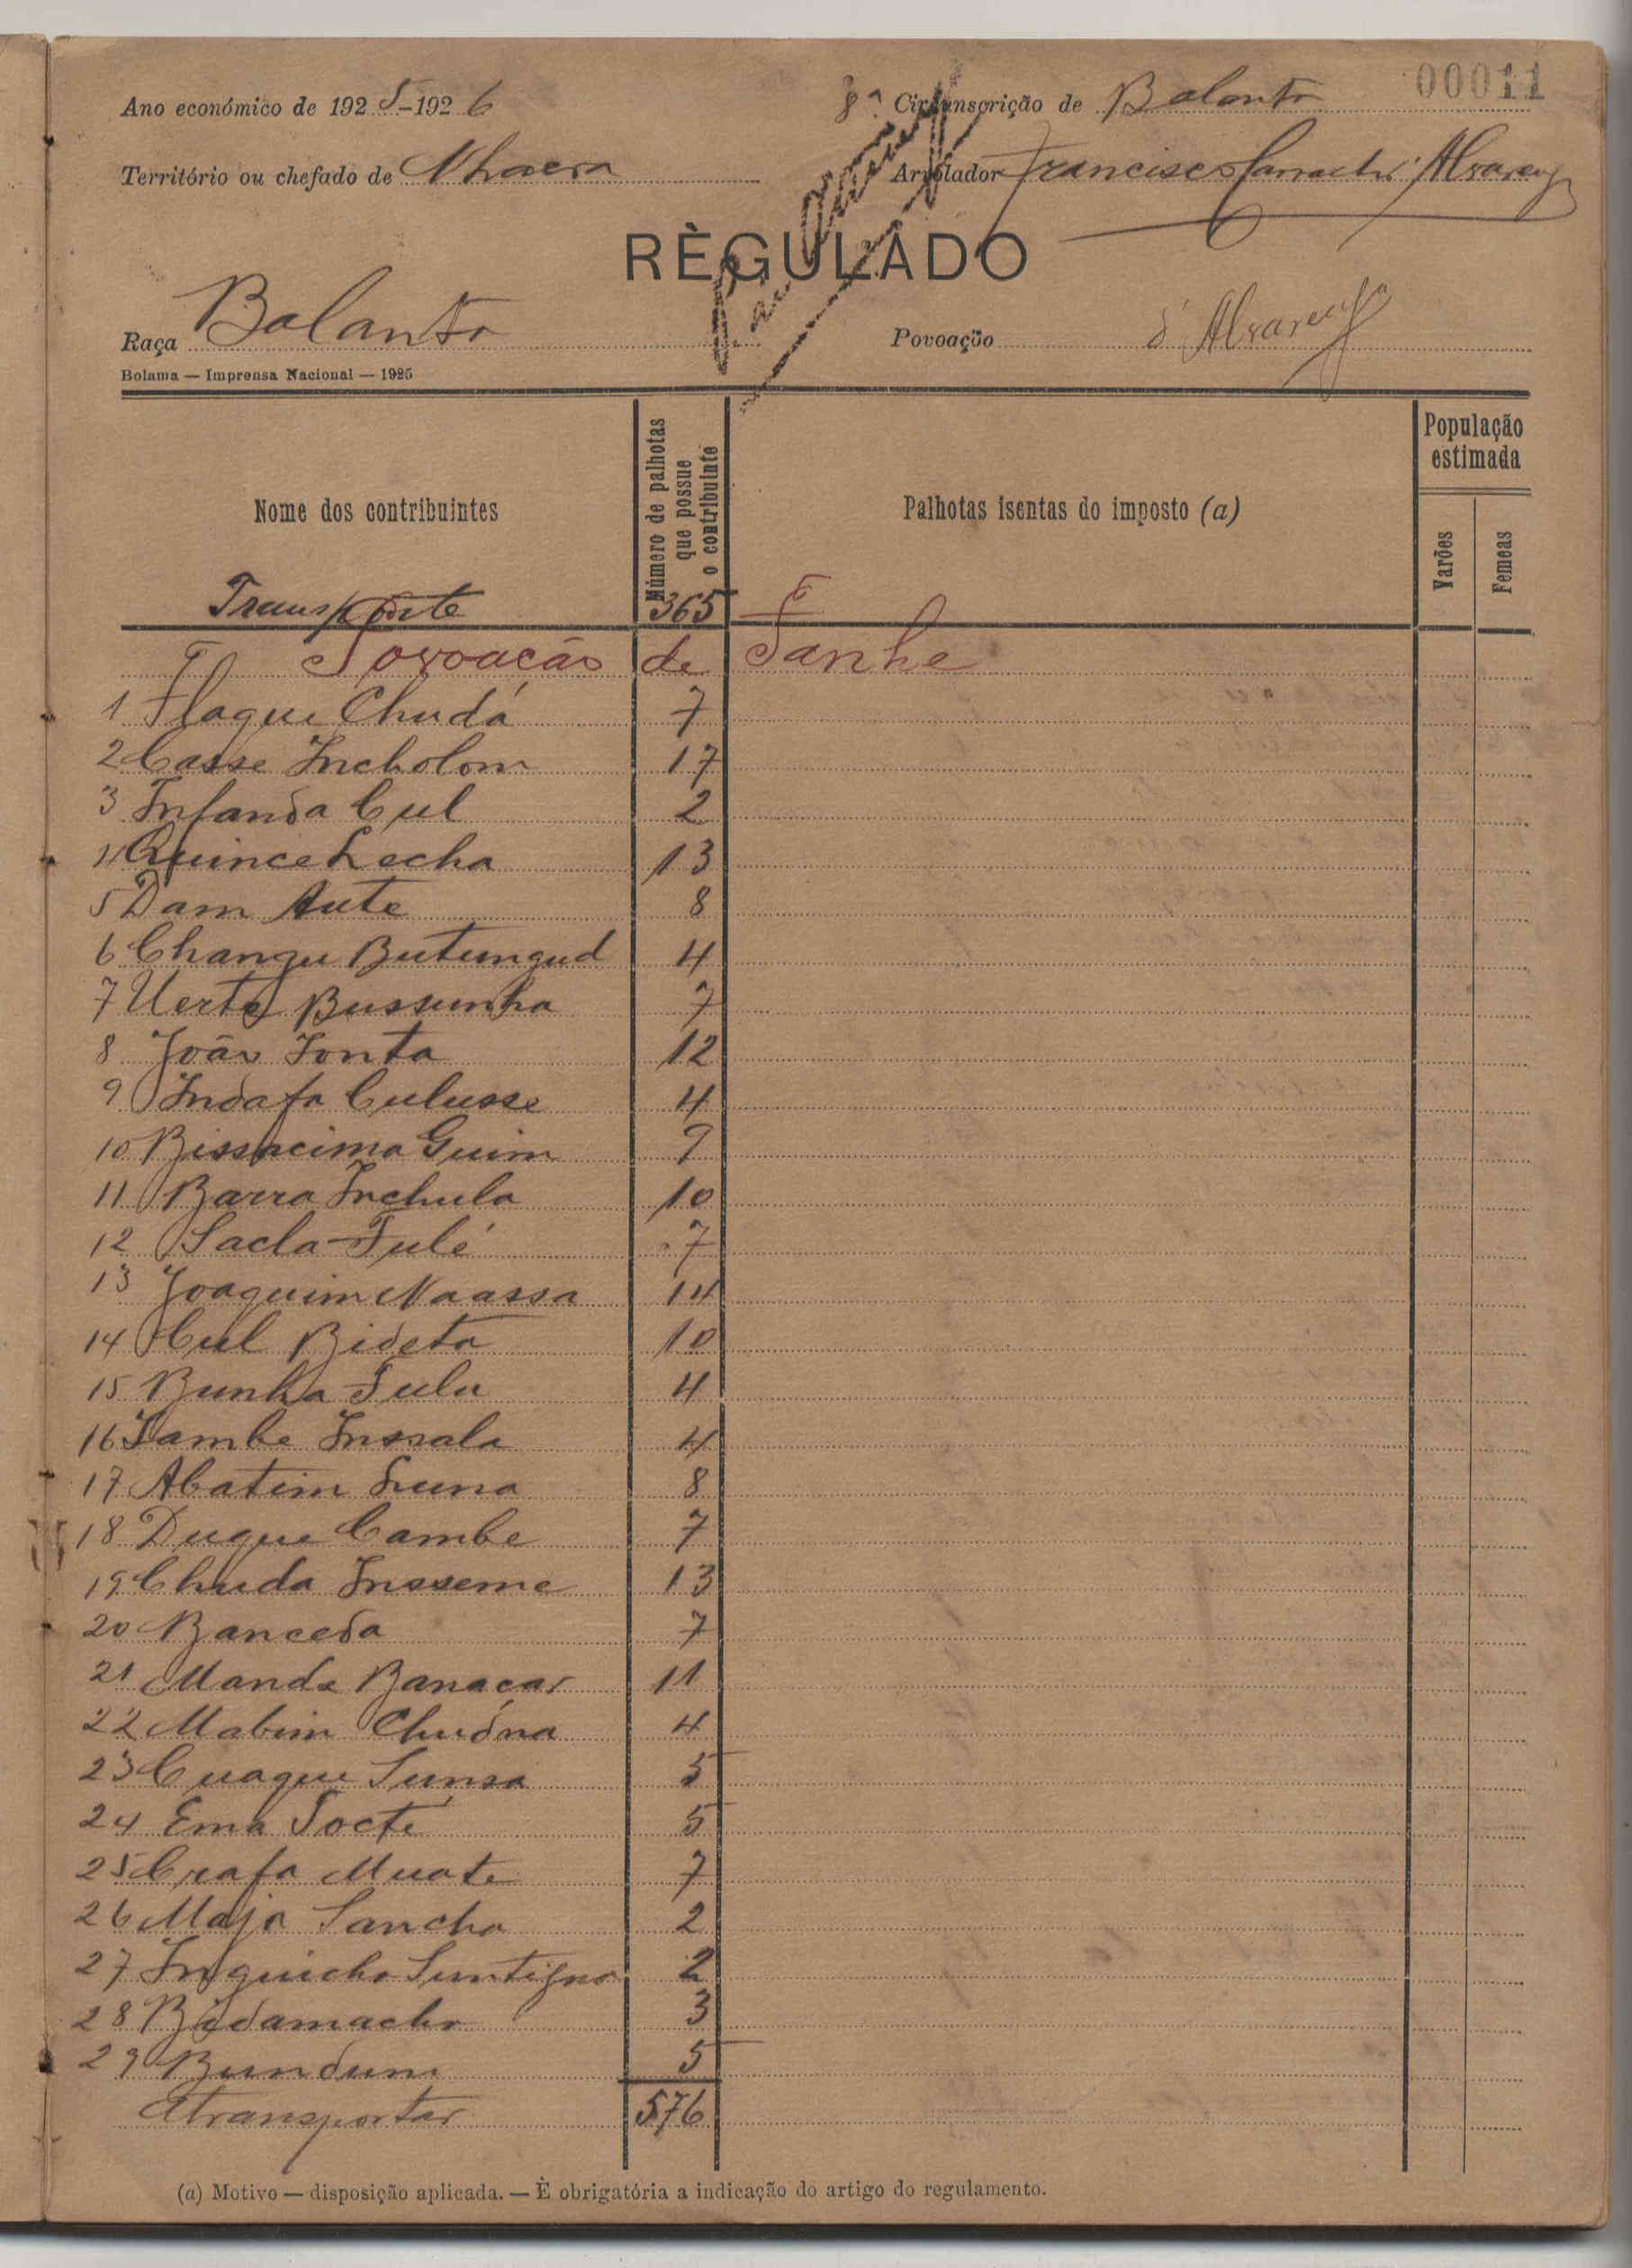 00011
Ano económico de 1925-1926 8ª Circunscrição de Balanta
Território ou chefado de Nhacra Arrolador Francisco Alvarenga
RÈGULADO
Raça Balanta Povoação d'Alvarenga
Bolama — Imprensa Nacional — 1925
Nome dos contribuintes Número de palhotas que possue o contribuinte Palhotas isentas do imposto (a) População estimada
Varões Femeas
Transporte 365
Povoacão de Fanhe
1 Flaque Chudá 7
2 Casse Incholom 17
3 Infanda Cul 2
4 Quince Lecha 13
5 Dam Aute 8
6 Changu Butungud 4
7 Uerte Bussunha 7
8 João Fonta 12
9 Indafa Culusse 4
10 Bissacima Guim 9
11 Barra Inchula 10
12 Sacla Fulé 7
13 Joaquim Naassa 14
14 Cul Bideta 10
15 Bunha Fulu 4
16 Tambe Inssala 4
17 Abatim Luna 8
18 Duque Cambe 7
19 Chuda Insseme 13
20 Banceda 7
21 Manda Banaçar 11
22 Mabim Chudna 4
23 Cuaque Sunsa 5
24 Ema Socte 5
25 Crafa Muate 7
26 Maja Sancha 2
27 Inquicho 2
28 Bidamacho 3
29 Bundum 5
Atransportar 576
(a) Motivo — disposição aplicada. — È obrigatória a indicação do artigo do regulamento.